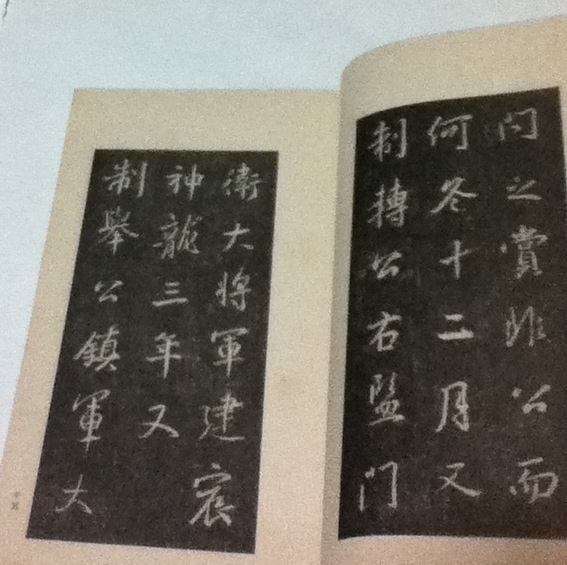 門之賞非公而
何冬十二月又
制轉公右監門
衛大將軍建宸
神龍三年又
制舉公鎮軍大